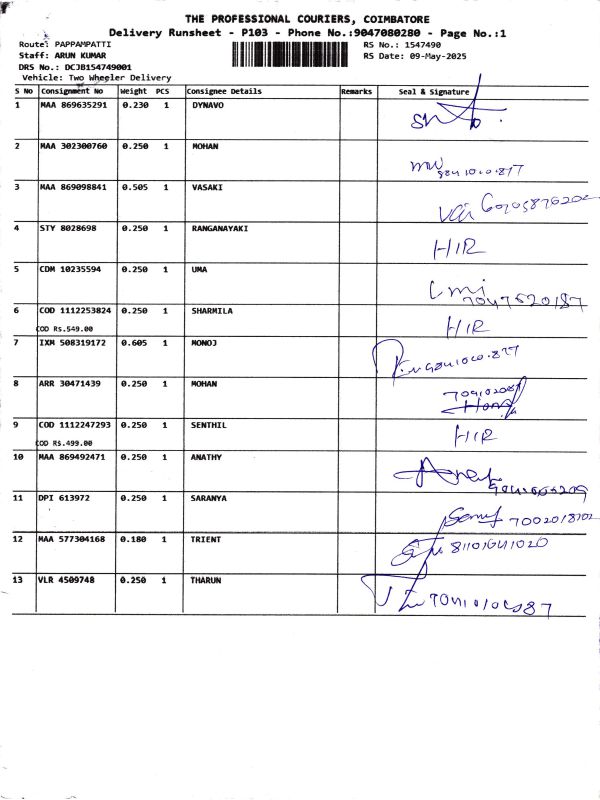 THE PROFESSIONAL COURIERS, COIMBATORE
Delivery Runsheet - P103 - Phone No.:9047080280 - Page No.:1
Route: PAPPAMPATTI RS No.: 1547490
Staff: ARUN KUMAR RS Date: 09-May-2025
DRS No.: DCJB154749001
Vehicle: Two Wheeler Delivery
S No Consignment No Weight PCS Consignee Details Remarks Seal & Signature
1 MAA 869635291 0.230 1 DYNAVO
2 MAA 302300760 0.250 1 MOHAN
3 MAA 869098841 0.505 1 VASAKI
4 STY 8028698 0.250 1 RANGANAYAKI H/R
5 CDM 10235594 0.250 1 UMA
6 COD 1112253824 0.250 1 SHARMILA H/R
COD Rs.549.00
7 IXM 508319172 0.605 1 MONOJ
8 ARR 30471439 0.250 1 MOHAN
9 COD 1112247293 0.250 1 SENTHIL H/R
COD Rs.499.00
10 MAA 869492471 0.250 1 ANATHY
11 DPI 613972 0.250 1 SARANYA
12 MAA 577304168 0.180 1 TRIENT
13 VLR 4509748 0.250 1 THARUN